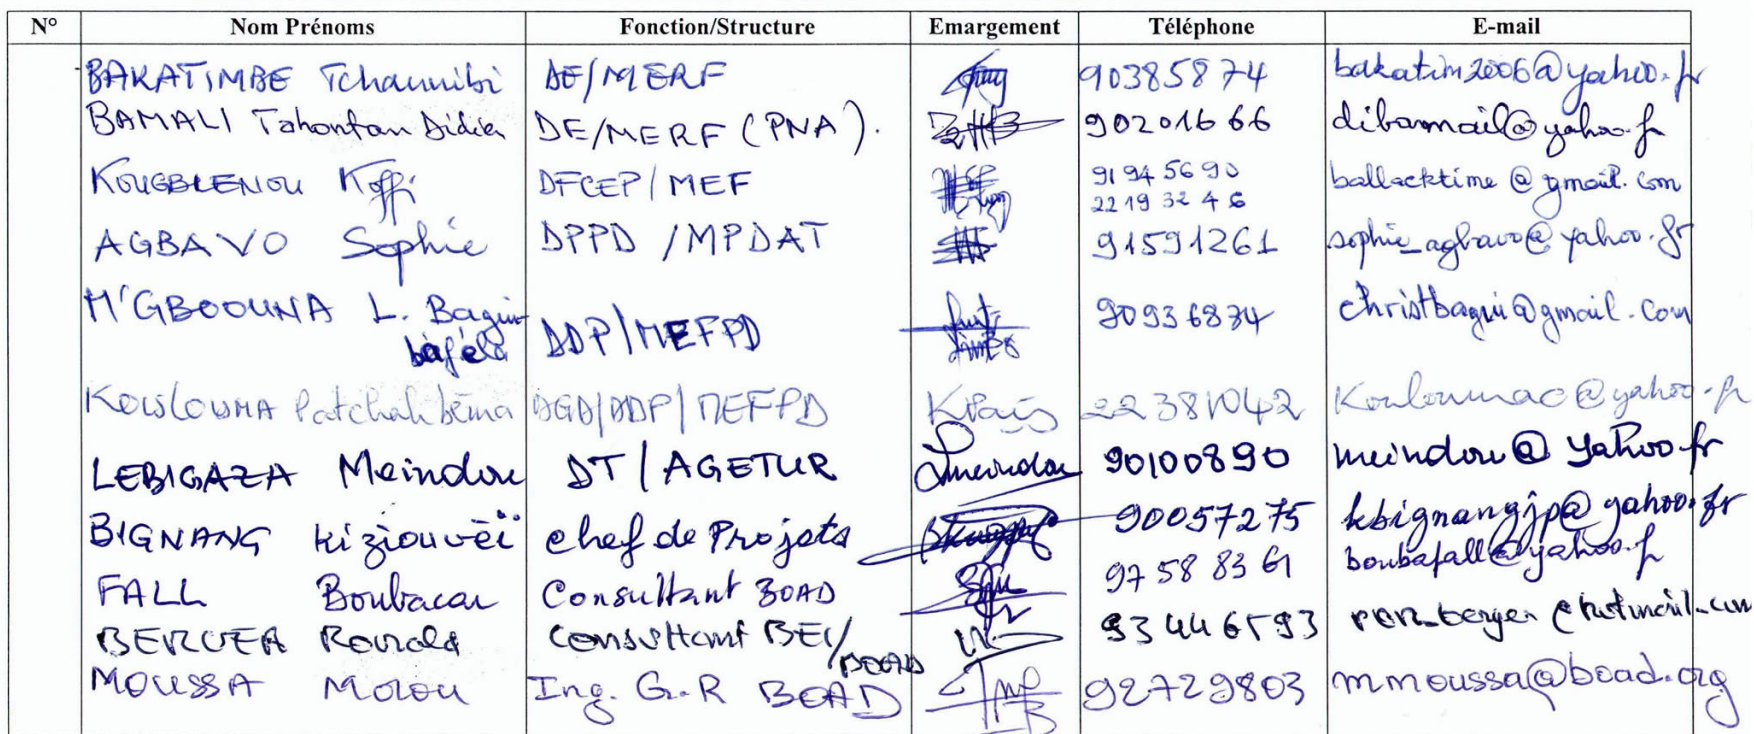 N° Nom Prénoms Fonction/Structure Emargement Téléphone E-mail
BAKATIMBE Tchannibi DE/MERF 90385874 bakatim2006@yahoo.fr
BAMALI Tahontan Didier DE/MERF (PNA). 90201666 dibamail@yahoo.fr
KOUGBLENOU Koffi DFCEP/MEF 91945690 ballacktime@gmail.com
22193246
AGBAVO Sophie DPPD/MPDAT 91591261 sophie_agbavo@yahoo.fr
M'GBOOUNA L. Bagui- DDP/MEFPD 90936834 christbagui@gmail.com
bafélé
KOULOUMA Patchahbéma DGD/DDP/MEFPD 22381042 Kouloumac@yahoo.fr
LEBIGAZA Meindou DT/AGETUR 90100890 meindou@yahoo.fr
BIGNANG Kiziouvèï chef de Projets 90057275 kbignangjp@yahoo.fr
FALL Boubacar Consultant BOAD 97588361 boubafall@yahoo.fr
BERGER Ronald Consultant BEI/ 93446593
BOAD
MOUSSA Molou Ing. G.R BOAD 92729803 mmoussa@boad.org